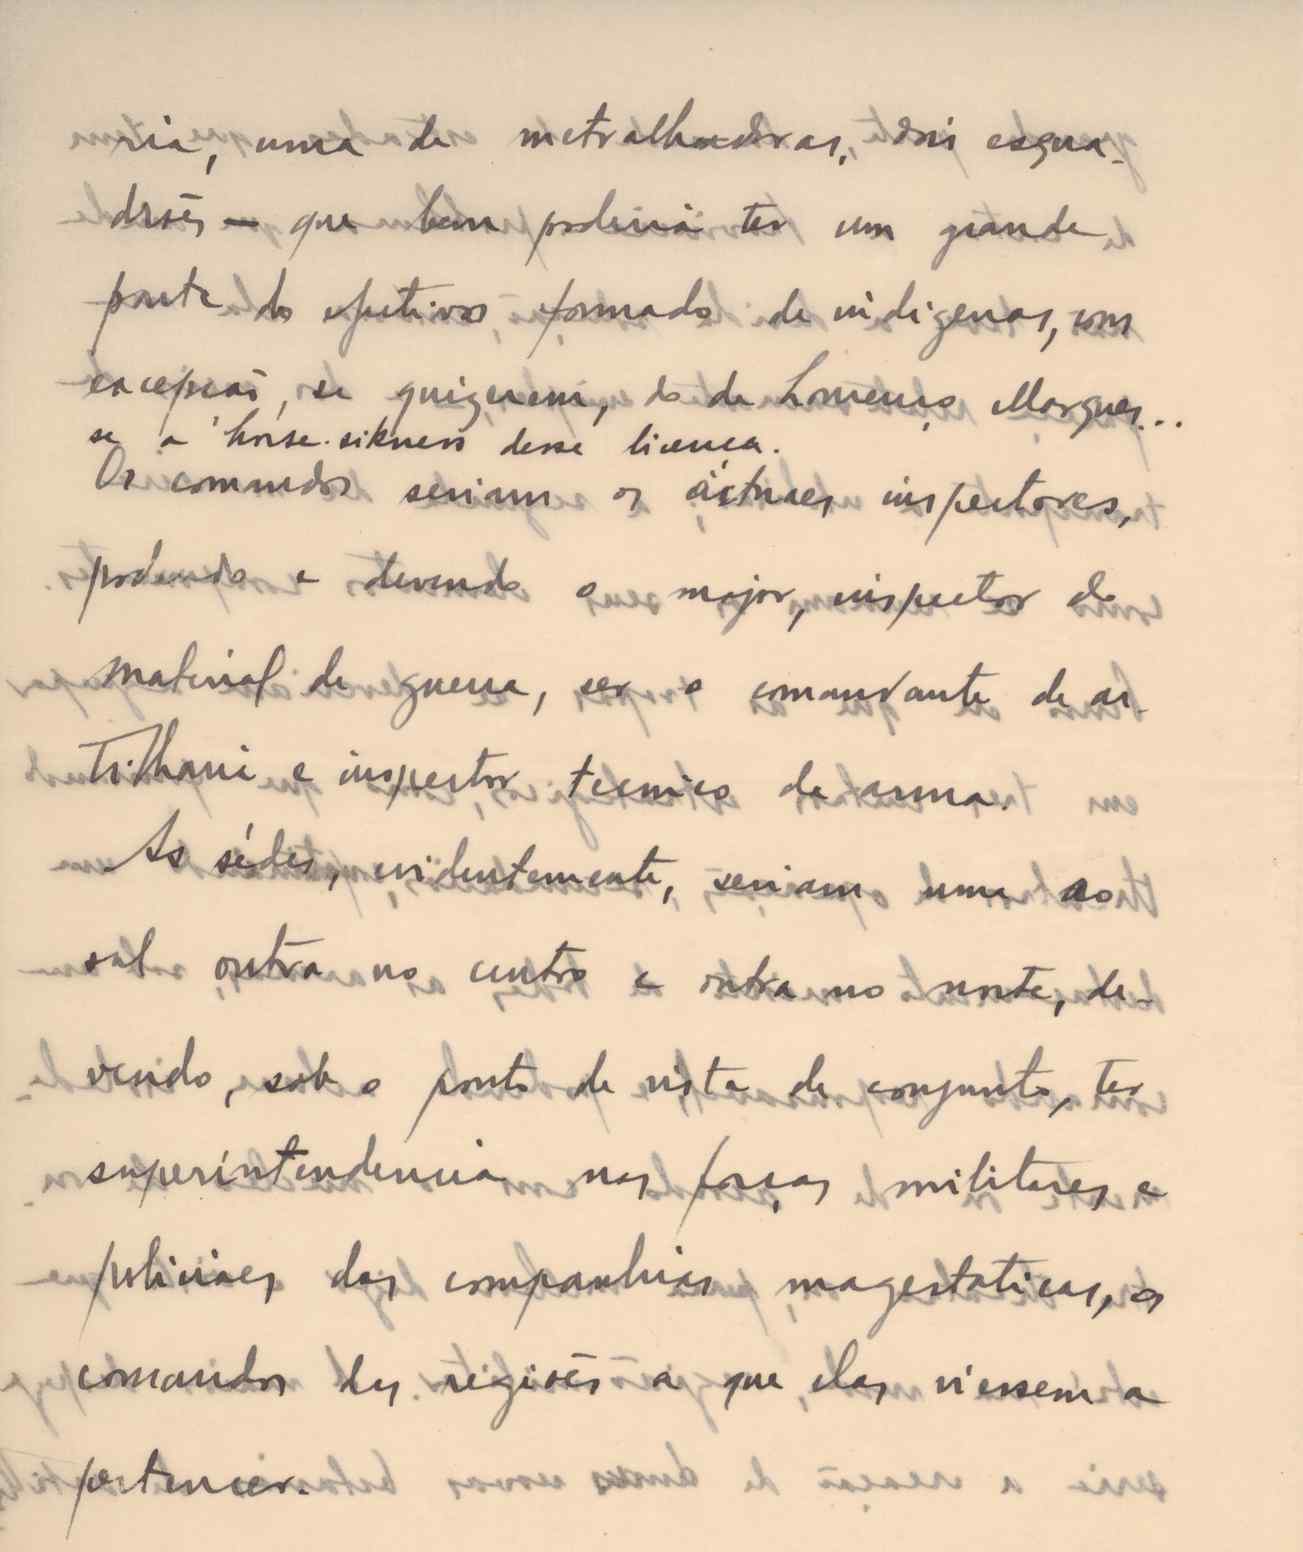 ria, uma de metralhadoras, dois esqua-
drões — que bem poderiã ter um grande
parte do efetivos formado de indigenas, com
excepção, se quizerem, do de Lourenço Marques...
se a 'horse-sikness desse licença.
Os comandos seriam os áctuaes inspectores,
podendo e devendo o major, inspector do
material de guerra, ser o comandante de ar-
tilharia e inspector tecnico da arma.
As sédes, evidentemente, seriam uma ao
sul outra no centro e outra no norte, de-
vendo, sob o ponto de vista de conjunto, ter
superintendencia nas forças militares e
policiaes das companhias magestaticas, os
comandos das regiões a que elas viessem a
pertencer.